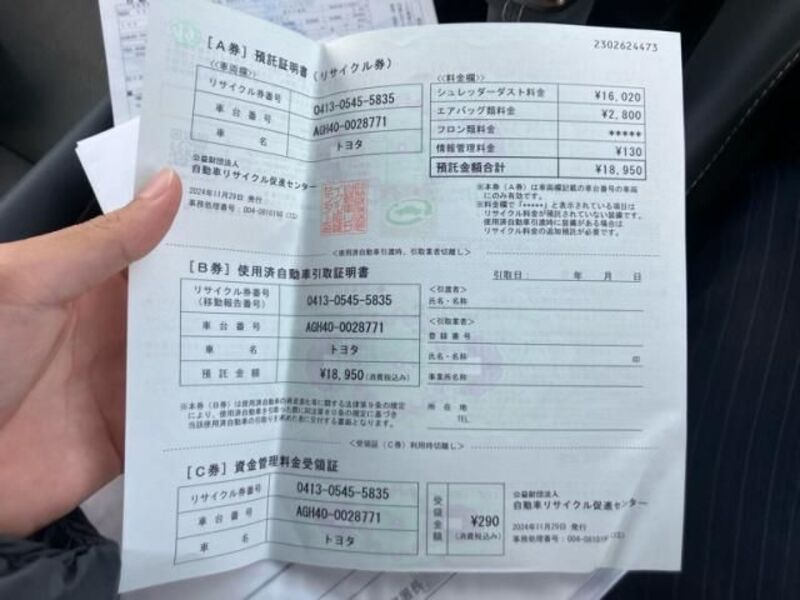 2302624473
[A券] 預託証明書(リサイクル券)
≪車両欄≫
リサイクル券番号 0413-0545-5835
車台番号 AGH40-0028771
車名 トヨタ
公益財団法人
自動車リサイクル促進センター
2024年11月29日 発行
≪料金欄≫
シュレッダーダスト料金 ¥16,020
エアバッグ類料金 ¥2,800
フロン類料金 *****
情報管理料金 ¥130
預託金額合計 ¥18,950
※本券(A券)は車両欄記載の車台番号の車両
にのみ有効です。
※料金欄で「*****」と表示されている項目は
リサイクル料金が預託されていない装備です。
使用済自動車引渡時に装備がある場合は
リサイクル料金の追加預託が必要です。
<使用済自動車引渡時、引取業者切離し>
[B券] 使用済自動車引取証明書
リサイクル券番号
(移動報告番号) 0413-0545-5835
車台番号 AGH40-0028771
車名 トヨタ
預託金額 ¥18,950(消費税込み)
引取日: 年 月 日
<引渡者>
氏名・名称
<引取業者>
登録番号
氏名・名称 印
事業所名称
所在地
TEL
※本券(B券)は使用済自動車の再資源化等に関する法律第9条の規定
により、使用済自動車を引取った際に同法第80条の規定に基づき
当該使用済自動車の引取りを求めた者に交付する書面となります。
<受領証(C券)利用時切離し>
[C券] 資金管理料金受領証
リサイクル券番号 0413-0545-5835
車台番号 AGH40-0028771
車名 トヨタ
受領金額 ¥290
(消費税込み)
公益財団法人
自動車リサイクル促進センター
2024年11月29日 発行